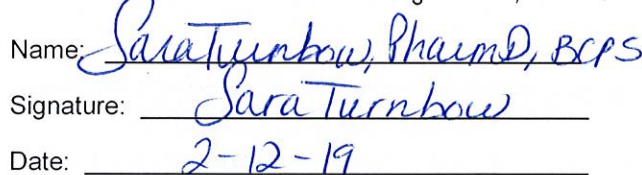 Name: Sara Turnbow, PharmD, BCPS
Signature: Sara Turnbow
Date: 2-12-19